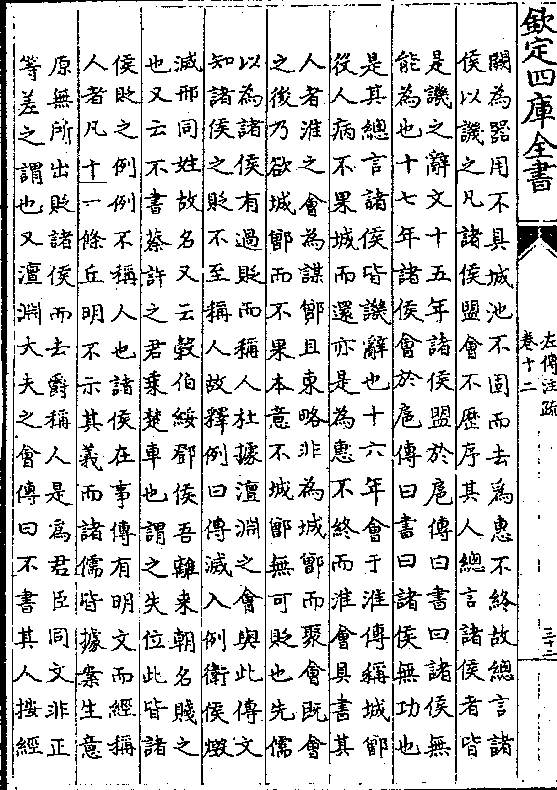 欽定四庫全書
闕為器用不具城池不固而去為惠不終故總言諸
侯以譏之凡諸侯盟會不歷序其人總言諸侯者皆
是譏之辭文十五年諸侯盟於扈傳曰書曰諸侯無
能為也十七年諸侯會於扈傳曰書曰諸侯無功也
是其總言諸侯皆譏辭也十六年會于淮傳稱城鄫
役人病不果城而還亦是為惠不終而淮會具書其
人者淮之會為謀鄫且東略非為城鄫而聚會既會
之後乃欲城鄫而不果本意不城鄫無可貶也先儒
以為諸侯有過貶而稱人杜據澶淵之會與此傳文
知諸侯之貶不至稱人故釋例曰傳滅入例衛侯燬
滅邢同姓故名又云穀伯綏鄧侯吾離来朝名賤之
也又云不書蔡許之君乗楚車也謂之失位此皆諸
侯貶之例例不稱人也諸侯在事傳有明文而經稱
人者凡十一條丘明不示其義而諸儒皆據案生意
原無所出貶諸侯而去爵稱人是為君臣同文非正
等差之謂也又澶淵大夫之會傳曰不書其人按經
左傳注疏
卷十二
三十二